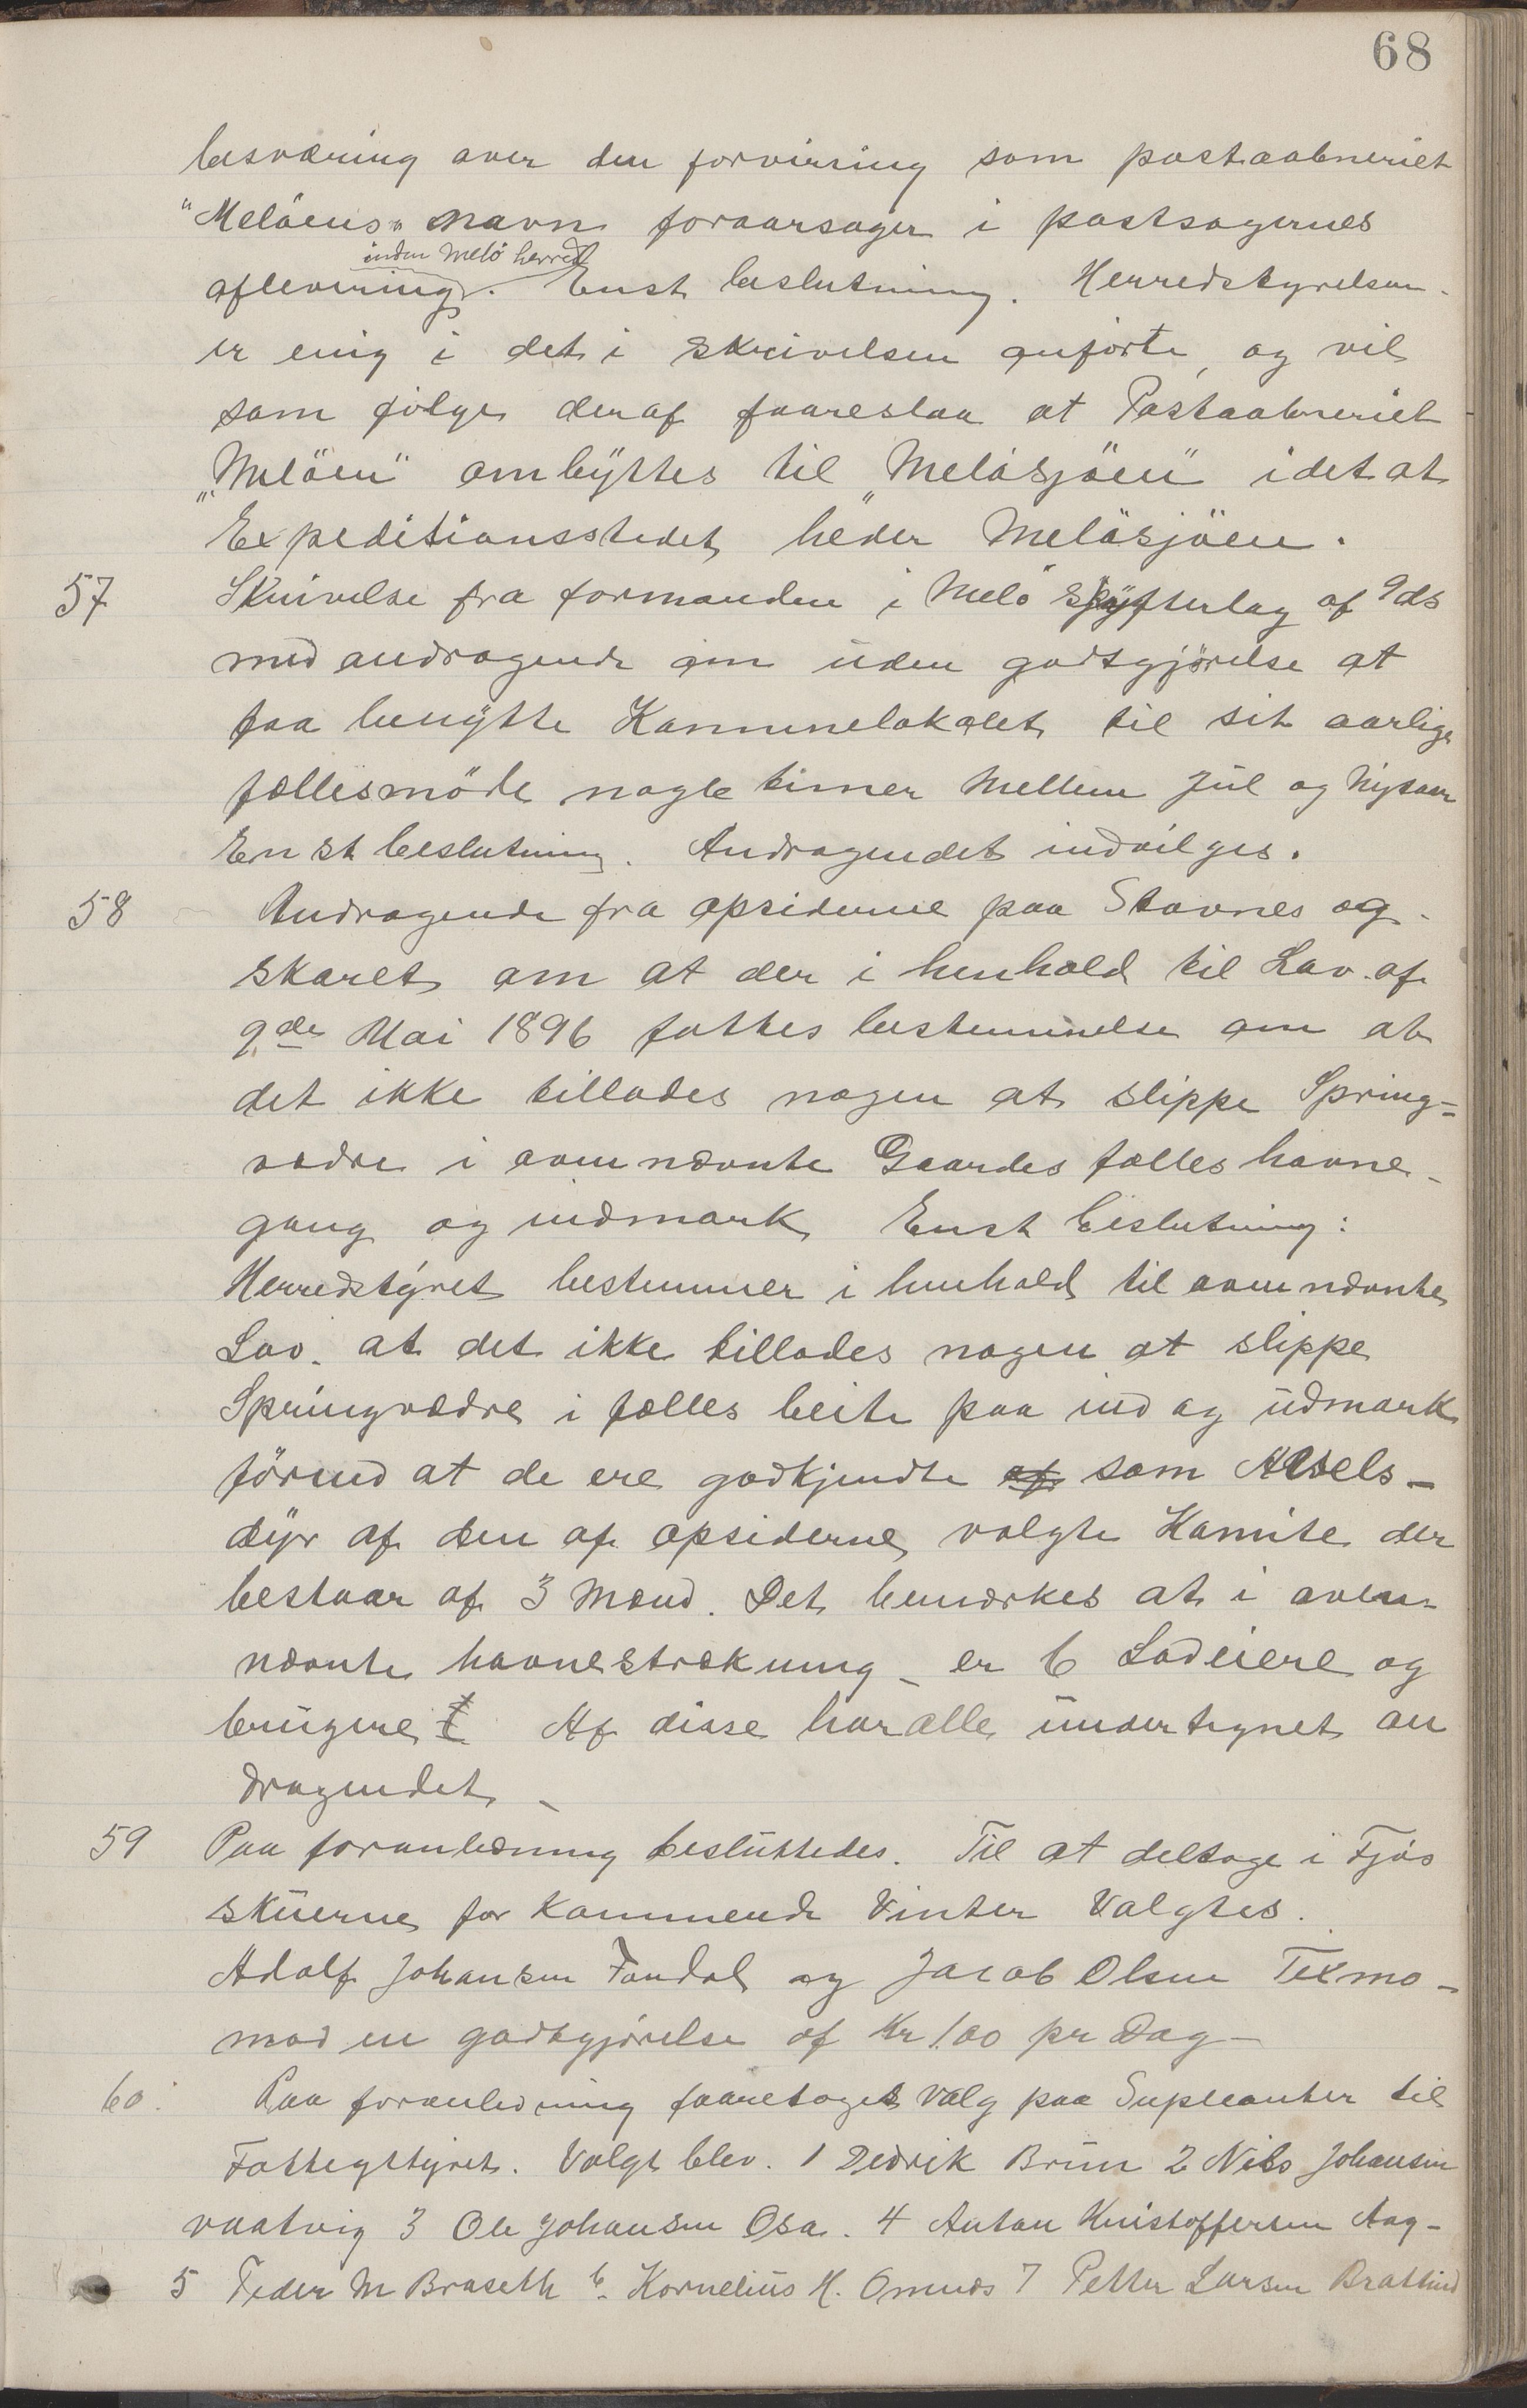 68
besværing over den forvirring som postaabneriet
"Melöens" navn foraarsager i postsagernes
inden Melö herred
aflevering. Enst beslutning. Herredstyrelsen
er enig i det i skrivelsen anförte, og vil
som fölge deraf faareslaa at Postaabneriet
"Melöen" ombyttes til "Melösjöen" idet at
Expeditionsstedet heder Melösjöen.
57 Skrivelse fra formanden i Melö skytterlag af 9ds
med andragende om uden godtgjörelse at
faa benytte Kommunelokalet til sit aarlige
fællesmöde nogle timer Mellem Jul og Nytaar
Enst beslutning. Andragendet indvilges.
58 Andragende fra opsiderne paa Stavnes og
skaret om at der i henhold til Lov af
9de Mai 1896 fattes bestemmelse om at
det ikke tillades nogen at slippe Spring=
vædre i ovennævnte Gaardes fælles havne-
gang og indmark Enst beslutning:
Herredstyret bestemmer i henhold til ovennævnte
Lov. at det ikke tillades nogen at slippe
Springvædre i fælles beite paa ind og udmark
förend at de ere godkjendte af som Avels-
dyr af den af opsiderne valgte Komite der
bestaar af 3 Mænd. Det bemærkes at i oven-
nævnte havnestrækning - er 6 Lodeiere og
brugere Af disse har alle undertegnet an
dragendet -
59 Paa foranledning besluttedes. Til at deltage i Fjös
skuerne for Kommende Vinter Valgtes.
Adolf Johansen Fondal og Jacob Olsen Texmo-
mod en godtgjörelse af Kr 1.00 pr Dag-
60. Paa foranledning faaretoges Valg paa Supleanter til
Fattigstyret. Valgt blev. 1 Dedrik Brun 2 Nils Johansen
vaatvig 3 Ole Johansen Osa. 4 Anton Kristoffersen Aag-
5 Peder M Braseth 6. Kornelius H. Ornæs 7 Petter Larsen Brattland